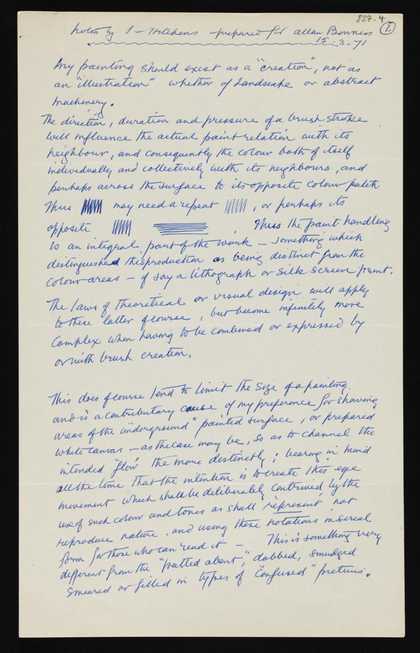 827.4
1
Notes by I - Hitchens - prepared for Allan Bowness
15-3-71
Any painting should exist as a "creation", not as
an "illustration" whether of Landscape or abstract
machinery.
The direction, duration and pressure of a brush stroke
will influence the actual paint relation with its
neighbour, and consequently the colour both of itself
individually and collectively with its neighbours, and
perhaps across the surface to its opposite colour patch
Thus may need a repeat , or perhaps its
opposite Thus the paint handling
is an integral part of the work - something which
distinguished the production as being distinct from the
colour-areas - of say a lithograph or silk screen print.
The laws of theoretical or visual design will apply
to these latter of course, but become infinitely more
complex when having to be combined or expressed by
or with brush creation.
This does of course tend to limit the size of a painting
and is a contributary cause of my preference for showing
areas of the "underground" painted surface, or prepared
white canvas - as the case may be, so as to channel the
intended "flow" the more distinctly; bearing in mind
all the time that the intention is to create this eye
movement which shall be deliberately contrived by the
use of such colour and tones as shall "represent" not
reproduce nature. and using these notations in serial
form for those who can read it - This is something very
different from the "patted about," dabbed, smudged
smeared or filled in types of "confused" pictures.